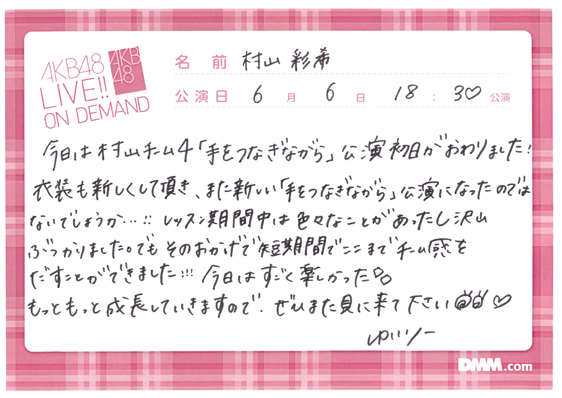 AKB48
LIVE!!
ON DEMAND
AKB
48
名前 村山彩希
公演日 6月6日 18:30♡公演
今日は村山チーム4「手をつなぎながら」公演初日がおわりました!
衣装も新しくして頂き、また新しい「手をつなぎながら」公演になったのでは
ないでしょうか…!! レッスン期間中は色々なことがあったし沢山
ぶつかりました。でもそのおかげで短期間でここまでチーム感を
だすことができました!!! 今日はすごく楽しかった
もっともっと成長していきますので、ぜひまた見に来て下さい ♡
ゆいりー
DMM.com